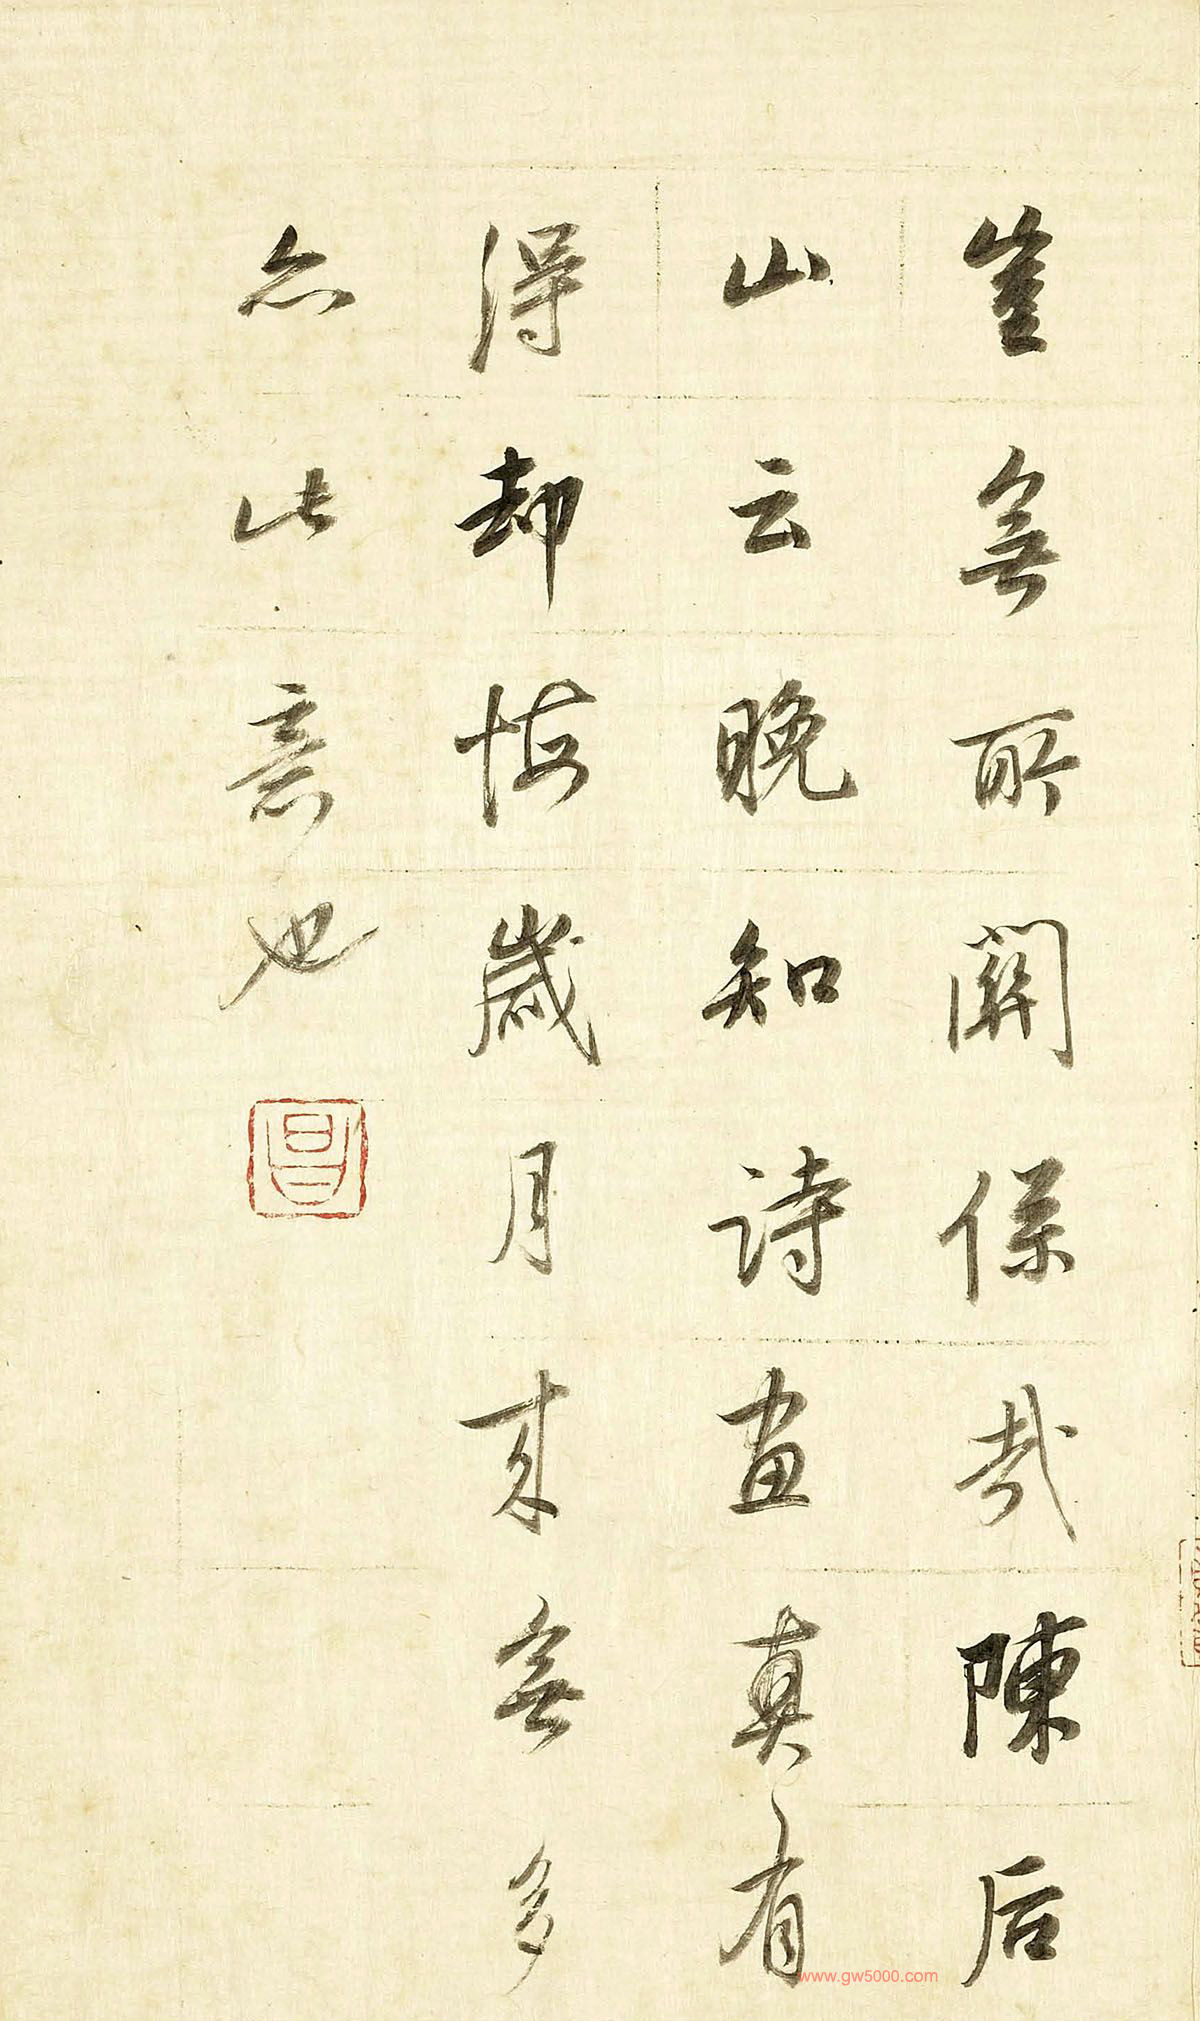 豈無所關係哉陳后
山云晚知詩畫真有
得却悔歲月來無多
亦此意也
昌
www.gw5000.com